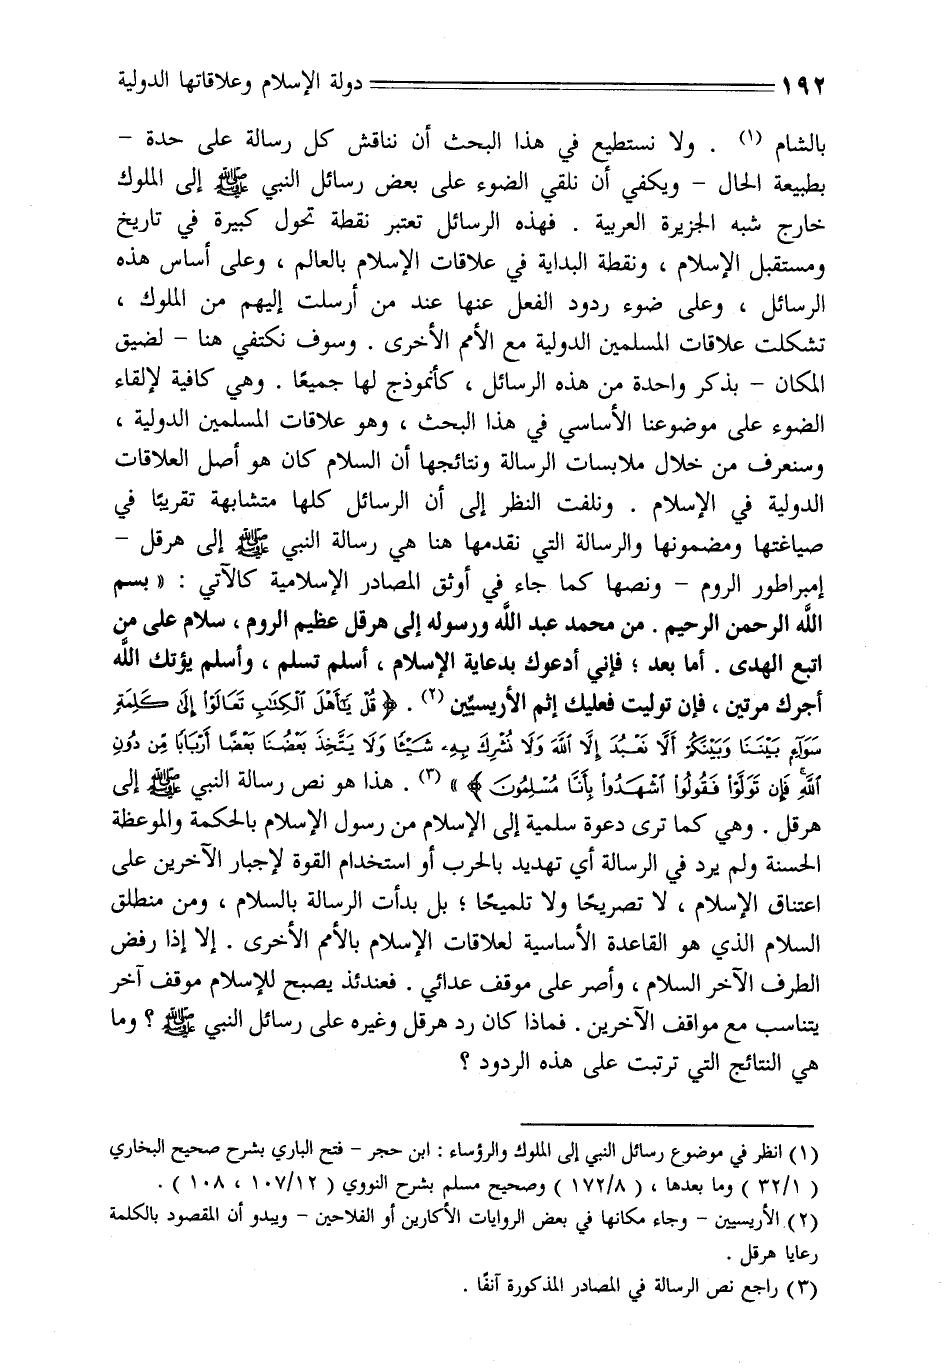 ١٩٢ دولة الإسلام وعلاقاتها الدولية
بالشام (١) . ولا نستطيع في هذا البحث أن نناقش كل رسالة على حدة –
بطبيعة الحال – ويكفي أن نلقي الضوء على بعض رسائل النبي ﷺ إلى الملوك
خارج شبه الجزيرة العربية . فهذه الرسائل تعتبر نقطة تحول كبيرة في تاريخ
ومستقبل الإسلام ، ونقطة البداية في علاقات الإسلام بالعالم ، وعلى أساس هذه
الرسائل ، وعلى ضوء ردود الفعل عنها عند من أرسلت إليهم من الملوك ،
تشكلت علاقات المسلمين الدولية مع الأمم الأخرى . وسوف نكتفي هنا – لضيق
المكان – بذكر واحدة من هذه الرسائل ، كأنموذج لها جميعًا . وهي كافية لإلقاء
الضوء على موضوعنا الأساسي في هذا البحث ، وهو علاقات المسلمين الدولية ،
وسنعرف من خلال ملابسات الرسالة ونتائجها أن السلام كان هو أصل العلاقات
الدولية في الإسلام . ونلفت النظر إلى أن الرسائل كلها متشابهة تقريبًا في
صياغتها ومضمونها والرسالة التي نقدمها هنا هي رسالة النبي ﷺ إلى هرقل –
إمبراطور الروم – ونصها كما جاء في أوثق المصادر الإسلامية كالآتي : « بسم
اللَّه الرحمن الرحيم . من محمد عبد اللَّه ورسوله إلى هرقل عظيم الروم ، سلام على من
اتبع الهدى . أما بعد ؛ فإني أدعوك بدعاية الإسلام ، أسلم تسلم ، وأسلم يؤتك اللَّه
أجرك مرتين ، فإن توليت فعليك إثم الأريسيِّين (٢) . ﴿ قُلْ يَٰٓأَهْلَ ٱلْكِتَٰبِ تَعَالَوْا۟ إِلَىٰ كَلِمَةٍ
سَوَآءٍۭ بَيْنَنَا وَبَيْنَكُمْ أَلَّا نَعْبُدَ إِلَّا ٱللَّهَ وَلَا نُشْرِكَ بِهِۦ شَيْـًٔا وَلَا يَتَّخِذَ بَعْضُنَا بَعْضًا أَرْبَابًا مِّن دُونِ
ٱللَّهِ ۚ فَإِن تَوَلَّوْا۟ فَقُولُوا۟ ٱشْهَدُوا۟ بِأَنَّا مُسْلِمُونَ ﴾ » (٣) . هذا هو نص رسالة النبي ﷺ إلى
هرقل . وهي كما ترى دعوة سلمية إلى الإسلام من رسول الإسلام بالحكمة والموعظة
الحسنة ولم يرد في الرسالة أي تهديد بالحرب أو استخدام القوة لإجبار الآخرين على
اعتناق الإسلام ، لا تصريحًا ولا تلميحًا ؛ بل بدأت الرسالة بالسلام ، ومن منطلق
السلام الذي هو القاعدة الأساسية لعلاقات الإسلام بالأمم الأخرى . إلا إذا رفض
الطرف الآخر السلام ، وأصر على موقف عدائي . فعندئذ يصبح للإسلام موقف آخر
يتناسب مع مواقف الآخرين . فماذا كان رد هرقل وغيره على رسائل النبي ﷺ ؟ وما
هي النتائج التي ترتبت على هذه الردود ؟
(١) انظر في موضوع رسائل النبي إلى الملوك والرؤساء : ابن حجر – فتح الباري بشرح صحيح البخاري
( ٣٢/١ ) وما بعدها ، ( ١٧٢/٨ ) وصحيح مسلم بشرح النووي ( ١٠٧/١٢ ، ١٠٨ ) .
(٢) الأريسيين – وجاء مكانها في بعض الروايات الأكارين أو الفلاحين – ويبدو أن المقصود بالكلمة
رعايا هرقل .
(٣) راجع نص الرسالة في المصادر المذكورة آنفًا .